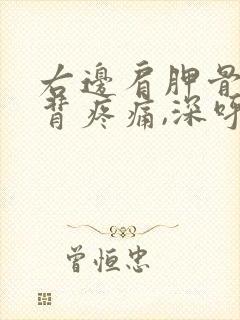 右邊肩胛骨
背疼痛,深呼
曾恒忠